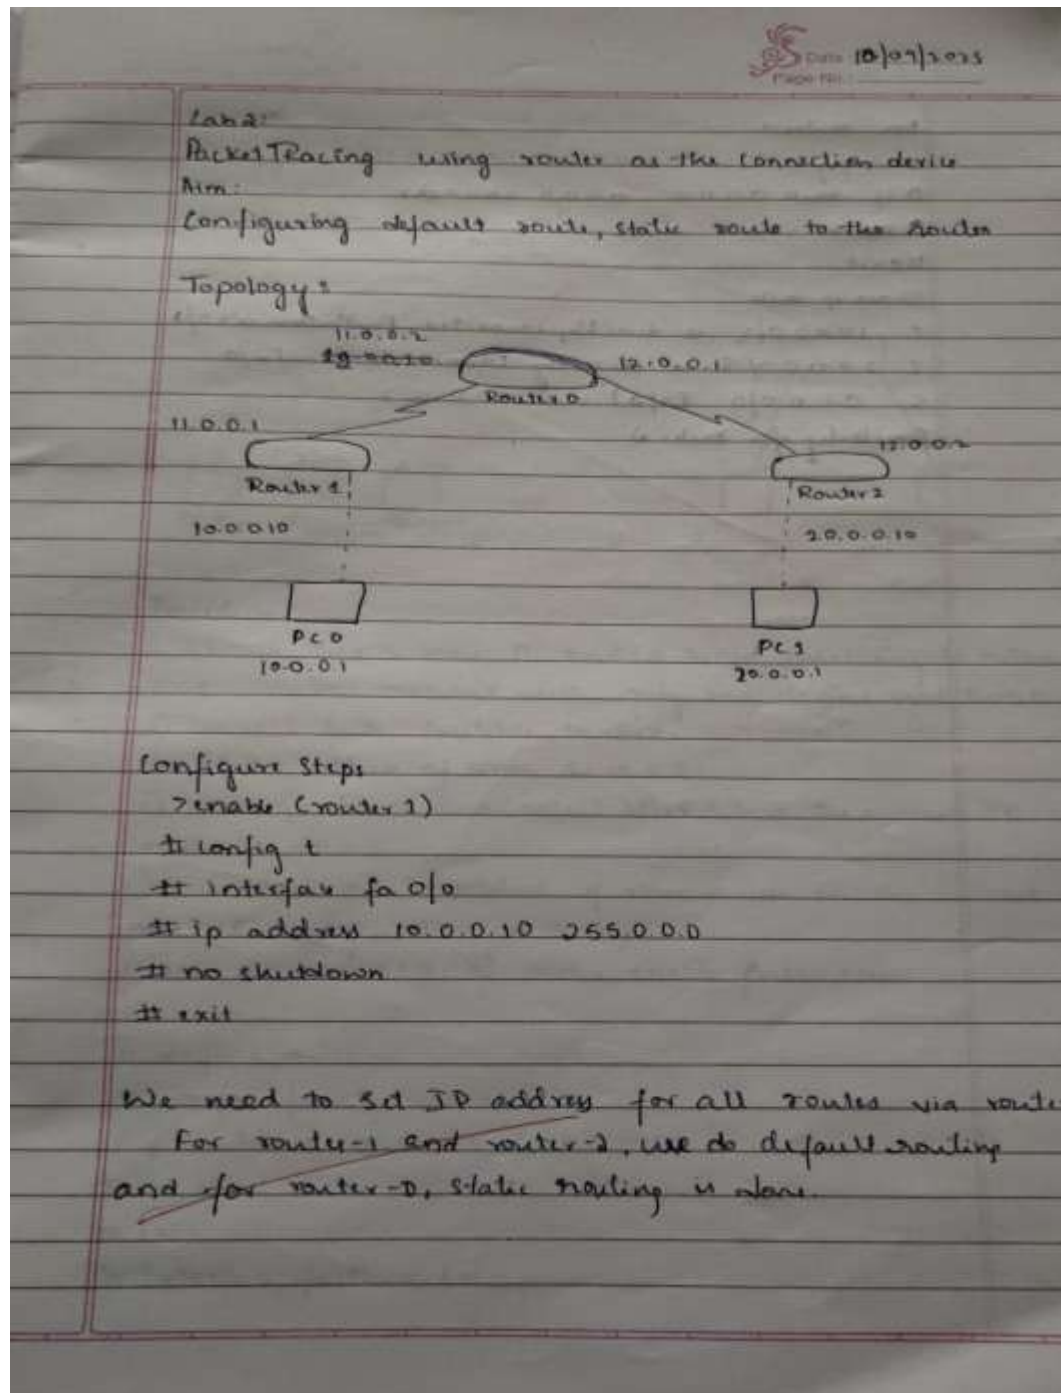 Date 10/09/2025
Page No.:
Lab 2:
Packet Tracing using router as the connection device
Aim:
Configuring default route, static route to the Router
Topology:
11.0.0.2
12.0.0.1
Router 0
11.0.0.1
12.0.0.2
Router 1
Router 2
10.0.0.10
20.0.0.10
PC 0
PC 1
10.0.0.1
20.0.0.1
Configure Steps
>enable (router 1)
# config t
# interface fa 0/0
# ip address 10.0.0.10 255.0.0.0
# no shutdown
# exit
We need to set IP address for all routes via route
For route-1 and router-2, we do default routing
and for router-0, static routing is done.